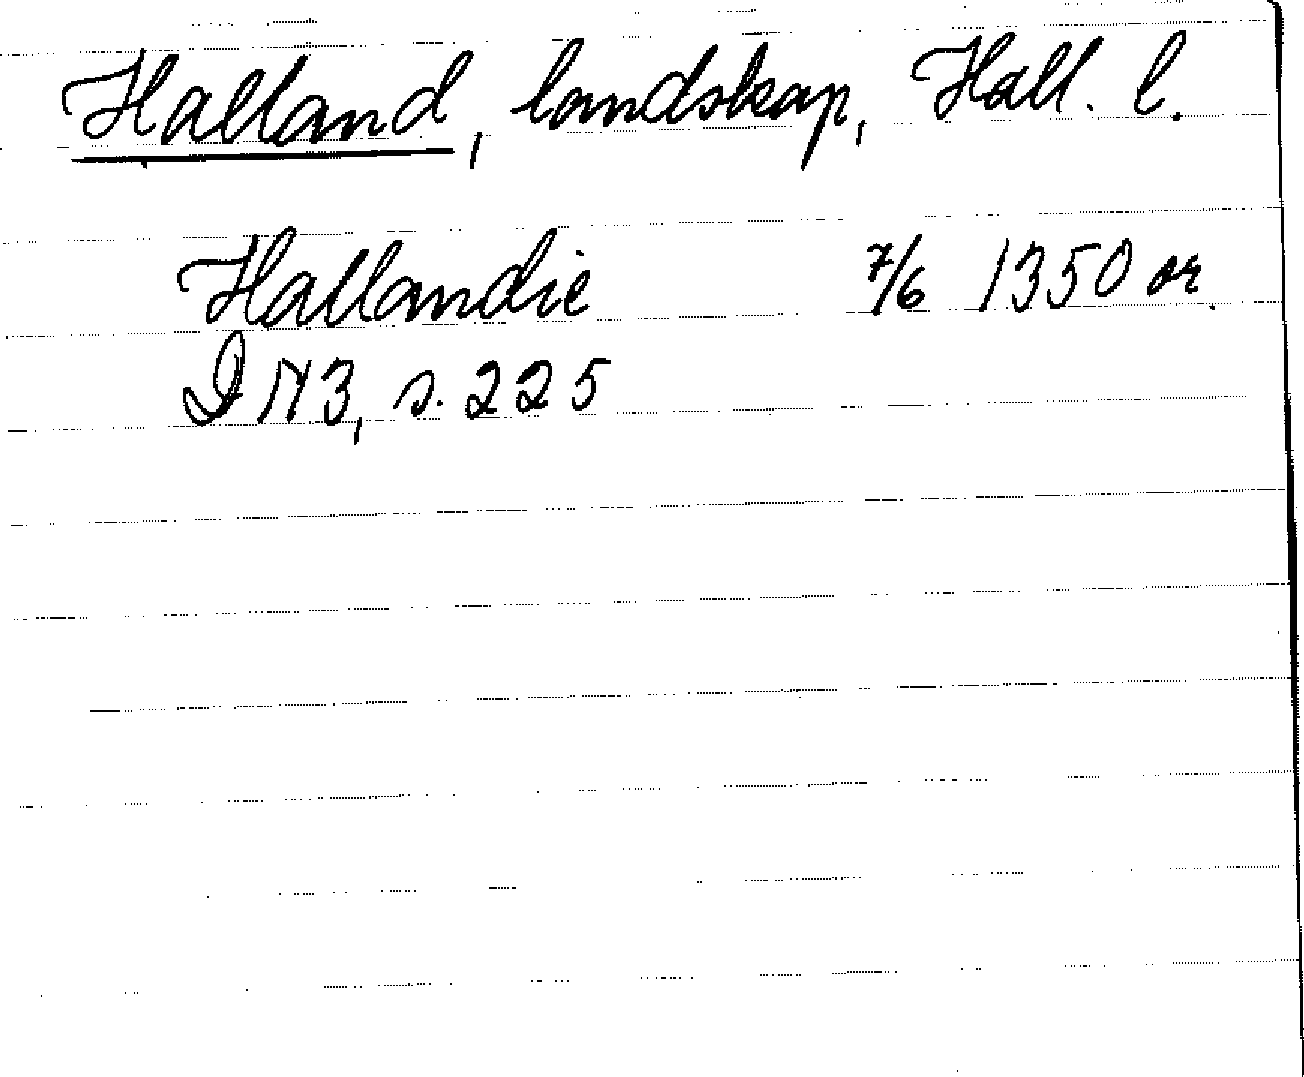 Halland, landskap, Hall. l.
Hallandie 7/6 1350 or.
DN3, s. 225